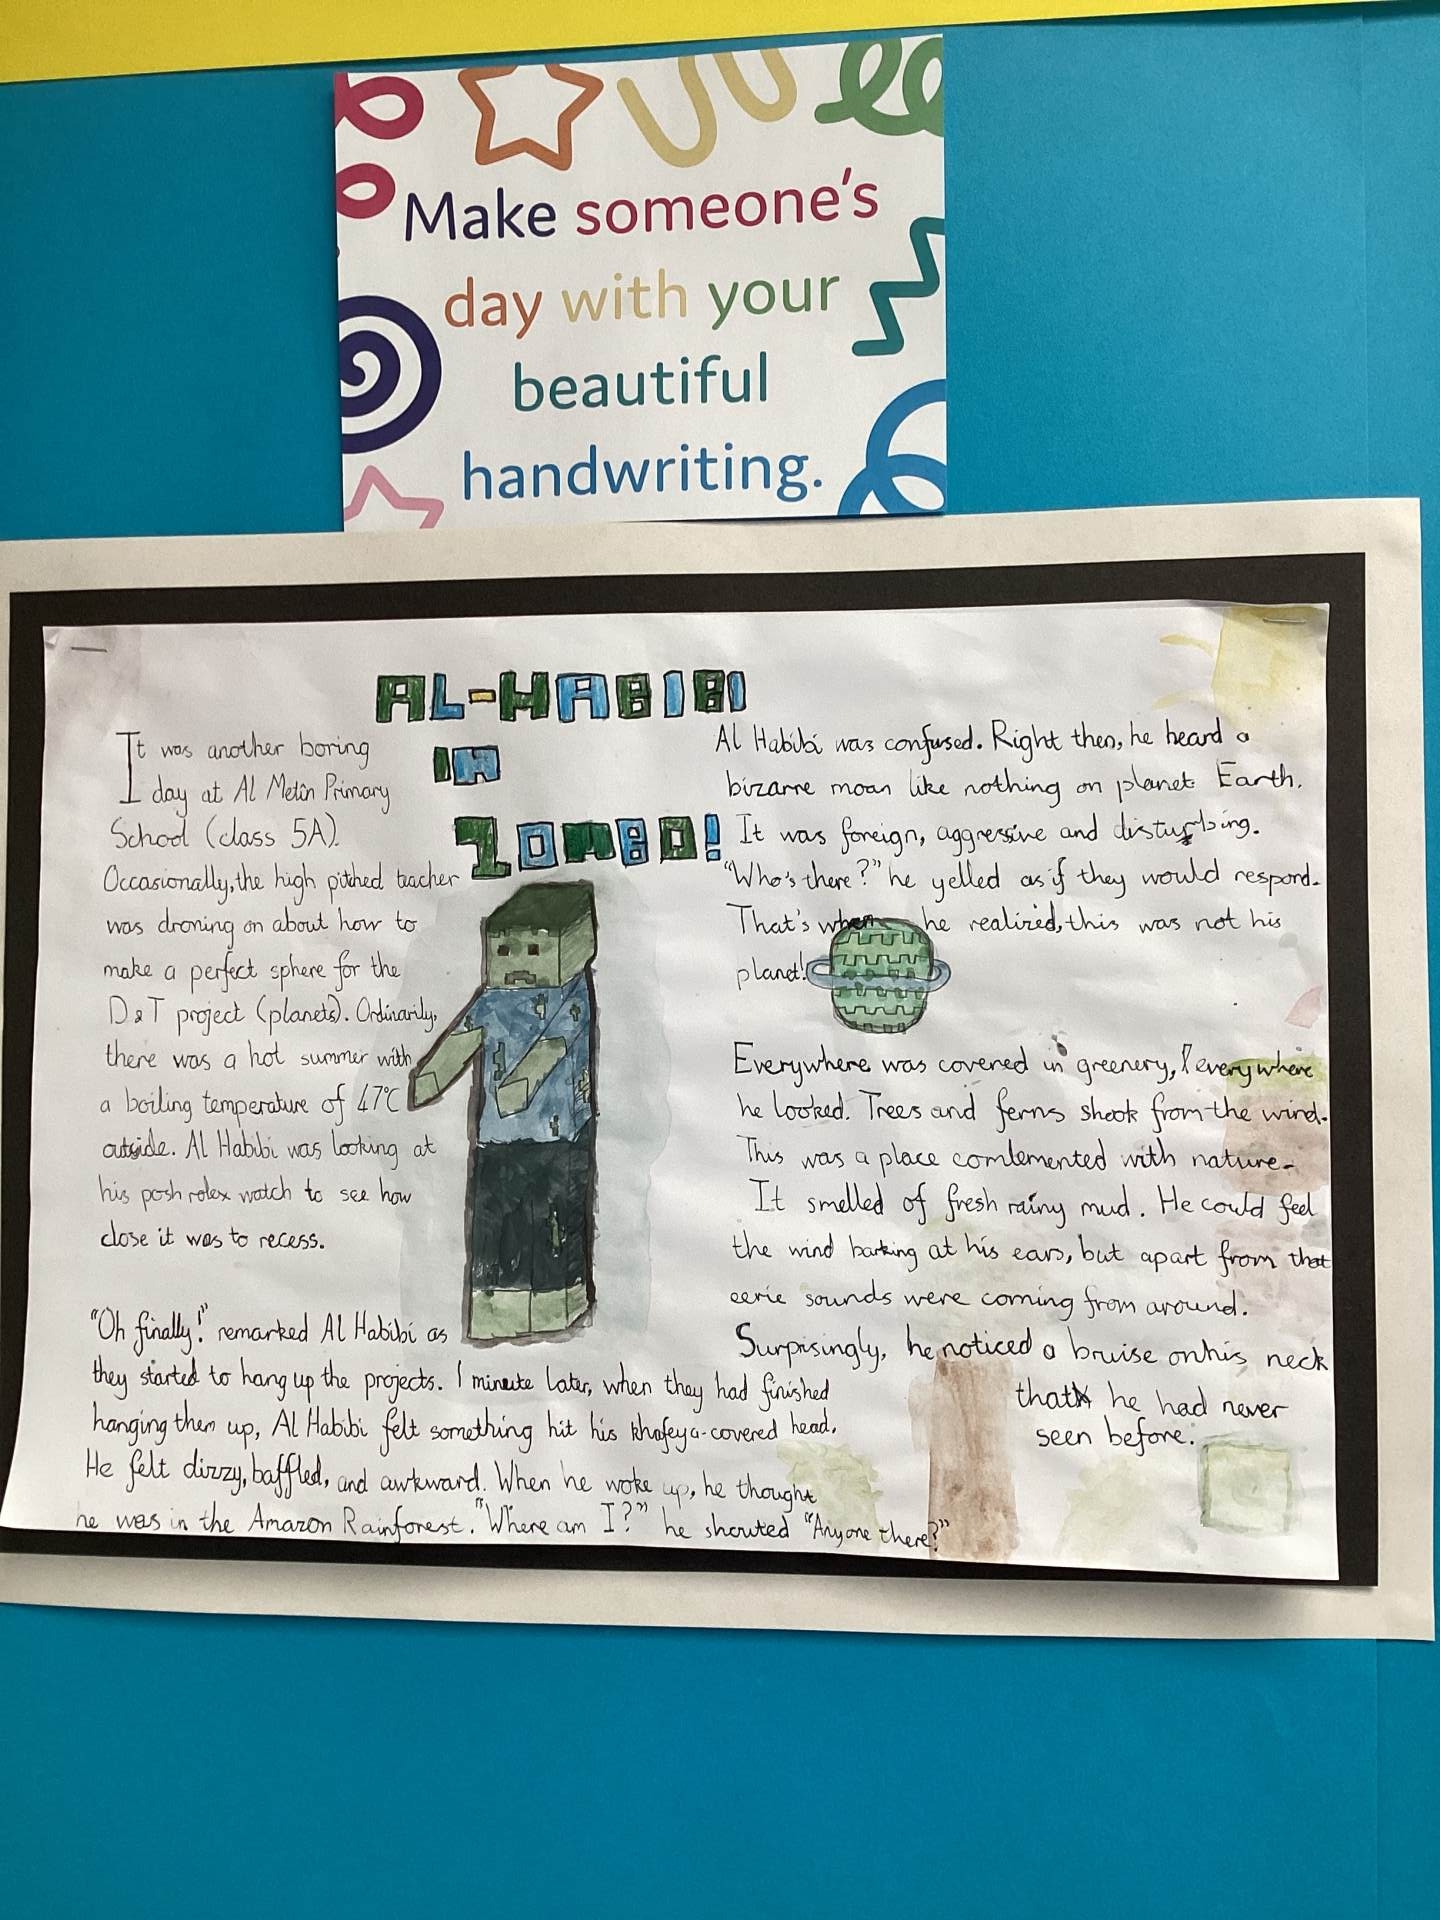 Make someone's
day with your
beautiful
handwriting.
AL-HABIBI
IN
ZOMBO!
It was another boring
day at Al Metin Primary
School (class 5A).
Occasionally, the high pitched teacher
was droning on about how to
make a perfect sphere for the
D&T project (planets). Ordinarily,
there was a hot summer with
a boiling temperature of 47°C
outside. Al Habibi was looking at
his posh rolex watch to see how
close it was to recess.
"Oh finally!" remarked Al Habibi as
they started to hang up the projects. 1 minute later, when they had finished
hanging them up, Al Habibi felt something hit his khafeya-covered head.
He felt dizzy, baffled, and awkward. When he woke up, he thought
he was in the Amazon Rainforest. "Where am I?" he shouted "Anyone there?"
Al Habibi was confused. Right then, he heard a
bizarre moan like nothing on planet Earth.
It was foreign, aggressive and disturbing.
"Who's there?" he yelled as if they would respond.
That's when he realized, this was not his
planet!
Everywhere was covered in greenery, everywhere
he looked. Trees and ferns shook from the wind.
This was a place comlemented with nature.
It smelled of fresh rainy mud. He could feel
the wind barking at his ears, but apart from that
eerie sounds were coming from around.
Surprisingly, he noticed a bruise on his neck
that he had never
seen before.